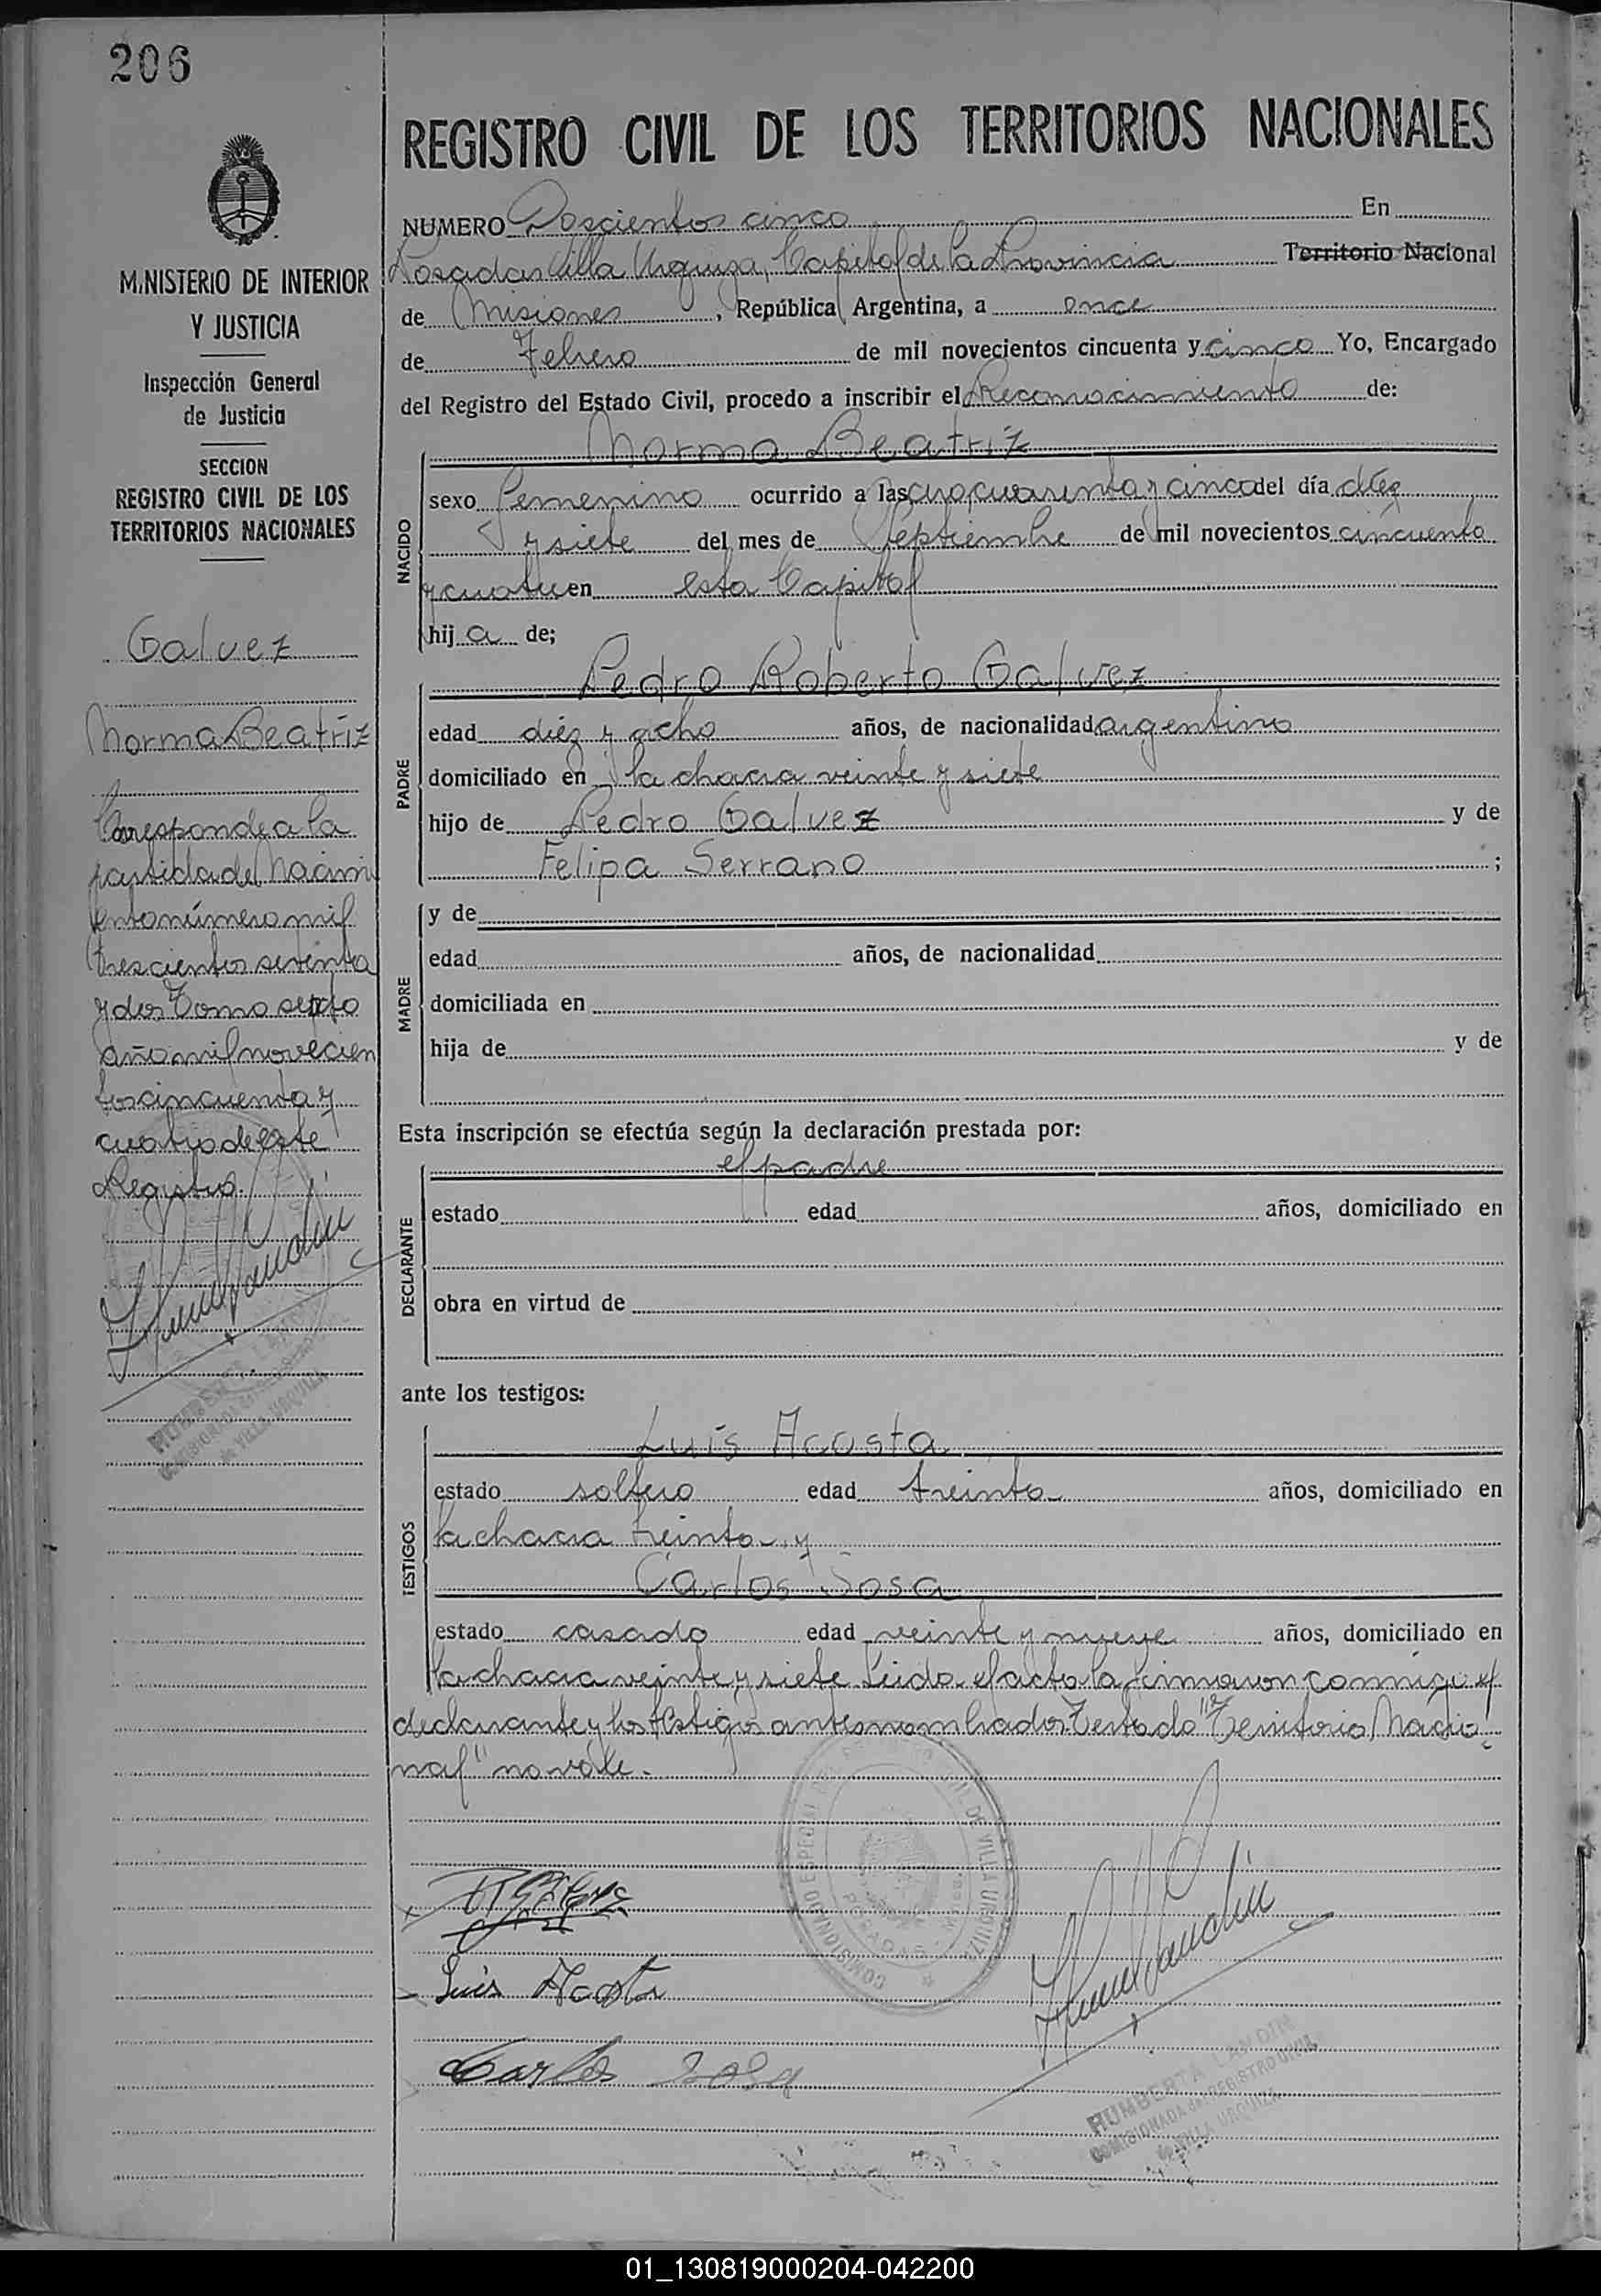 206
REGISTRO CIVIL DE LOS TERRITORIOS NACIONALES
M.NISTERIO DE INTERIOR
Y JUSTICIA
Inspección General
de Justicia
SECCION
REGISTRO CIVIL DE LOS
TERRITORIOS NACIONALES
Galvez
Norma Beatríz
Corresponde a la
partida del Nacimi
ento número mil
trescientos setenta
y dos Tomo septo
año mil novecien
tos cincuenta y
cuatro de este
Registro.
NUMERO Doscientos cinco En
Posadas Villa Urquiza, Capital de la Provincia Territorio Nacional
de Misiones, República Argentina, a once
de Febrero de mil novecientos cincuenta y cinco Yo, Encargado
del Registro del Estado Civil, procedo a inscribir el Reconocimiento de:
NACIDO
Norma Beatríz
sexo femenino ocurrido a las cuarenta y cinco del día diez
y siete del mes de Septiembre de mil novecientos cincuenta
y cuatro en esta Capital
hij a de;
PADRE
Pedro Roberto Galvez
edad diéz y ocho años, de nacionalidad argentino
domiciliado en la chacra veinte y siete
hijo de Pedro Galvez y de
Felipa Serrano ;
MADRE
y de
edad años, de nacionalidad
domiciliada en
hija de y de
Esta inscripción se efectúa según la declaración prestada por:
el padre
DECLARANTE
estado edad años, domiciliado en
obra en virtud de
ante los testigos:
TESTIGOS
Luís Acosta
estado soltero edad treinta años, domiciliado en
la chacra treinta y
Carlos Sosa
estado casado edad veinte y nueve años, domiciliado en
la chacra veinte y siete. Leida el acta la firmaron conmigo el
declarante y los testigos antes nombrados. Testado "Territorio Nacio-
nal" no vale.
COMISIONADO ESPECIAL DEL REGISTRO CIVIL DE VILLA URQUIZA
POSADAS - Misiones
Luis Acosta
Carlos Sosa
HUMBERTA LANDIN
COMISIONADA del REGISTRO CIVIL
de VILLA URQUIZA
01_130819000204-042200